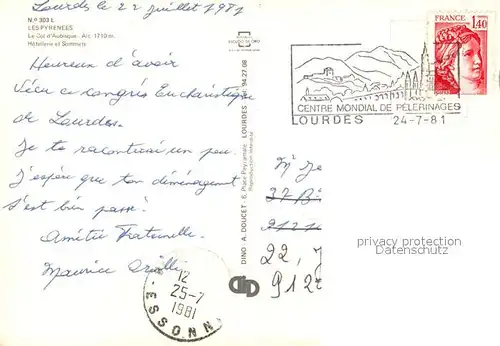 Lourdes le 22 juillet 1981
N.º 303 L
LES PYRENEES
Le Col d'Aubisque. Alt. 1710 m.
Hôtellerie et Sommets
Heureux d'avoir
Vécu ce congrès Eucharistique
de Lourdes.
Je te raconterai un peu.
J'espère que ton déménagement
s'est bien passé.
Amitié Fraternelle.
Maurice
DINO A. DOUCET - 6, Place Peyramale LOURDES Tél. 94.27.68
Reproduction interdite
FRANCE
1,40
CENTRE MONDIAL DE PÈLERINAGES
LOURDES 24-7-81
Mr Je
37 Bi
22, J
912
privacy protection
copyright protection
12
25-7
1981
ESSONN